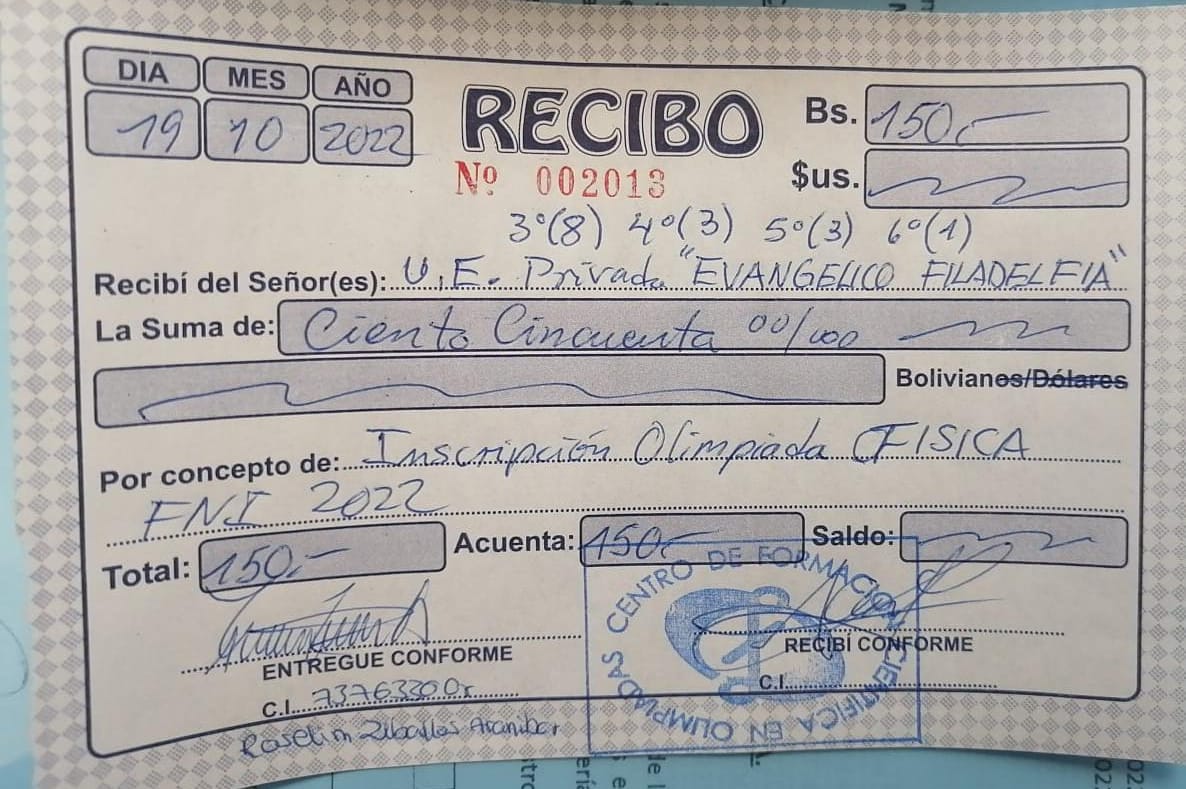 DIA MES AÑO
19 10 2022
RECIBO
Nº 002013
Bs. 150.-
$us.
3º(8) 4º(3) 5º(3) 6º(1)
Recibí del Señor(es): U.E. Privada "EVANGELICO FILADELFIA"
La Suma de: Ciento Cincuenta 00/100
Bolivianos/Dólares
Por concepto de: Inscripción Olimpiada FISICA
FNI 2022
Total: 150.- Acuenta: 150.- Saldo:
ENTREGUE CONFORME
C.I. 7376330 Or
RECIBÍ CONFORME
C.I.
CENTRO DE FORMACION CIENTIFICA EN OLIMPIADAS